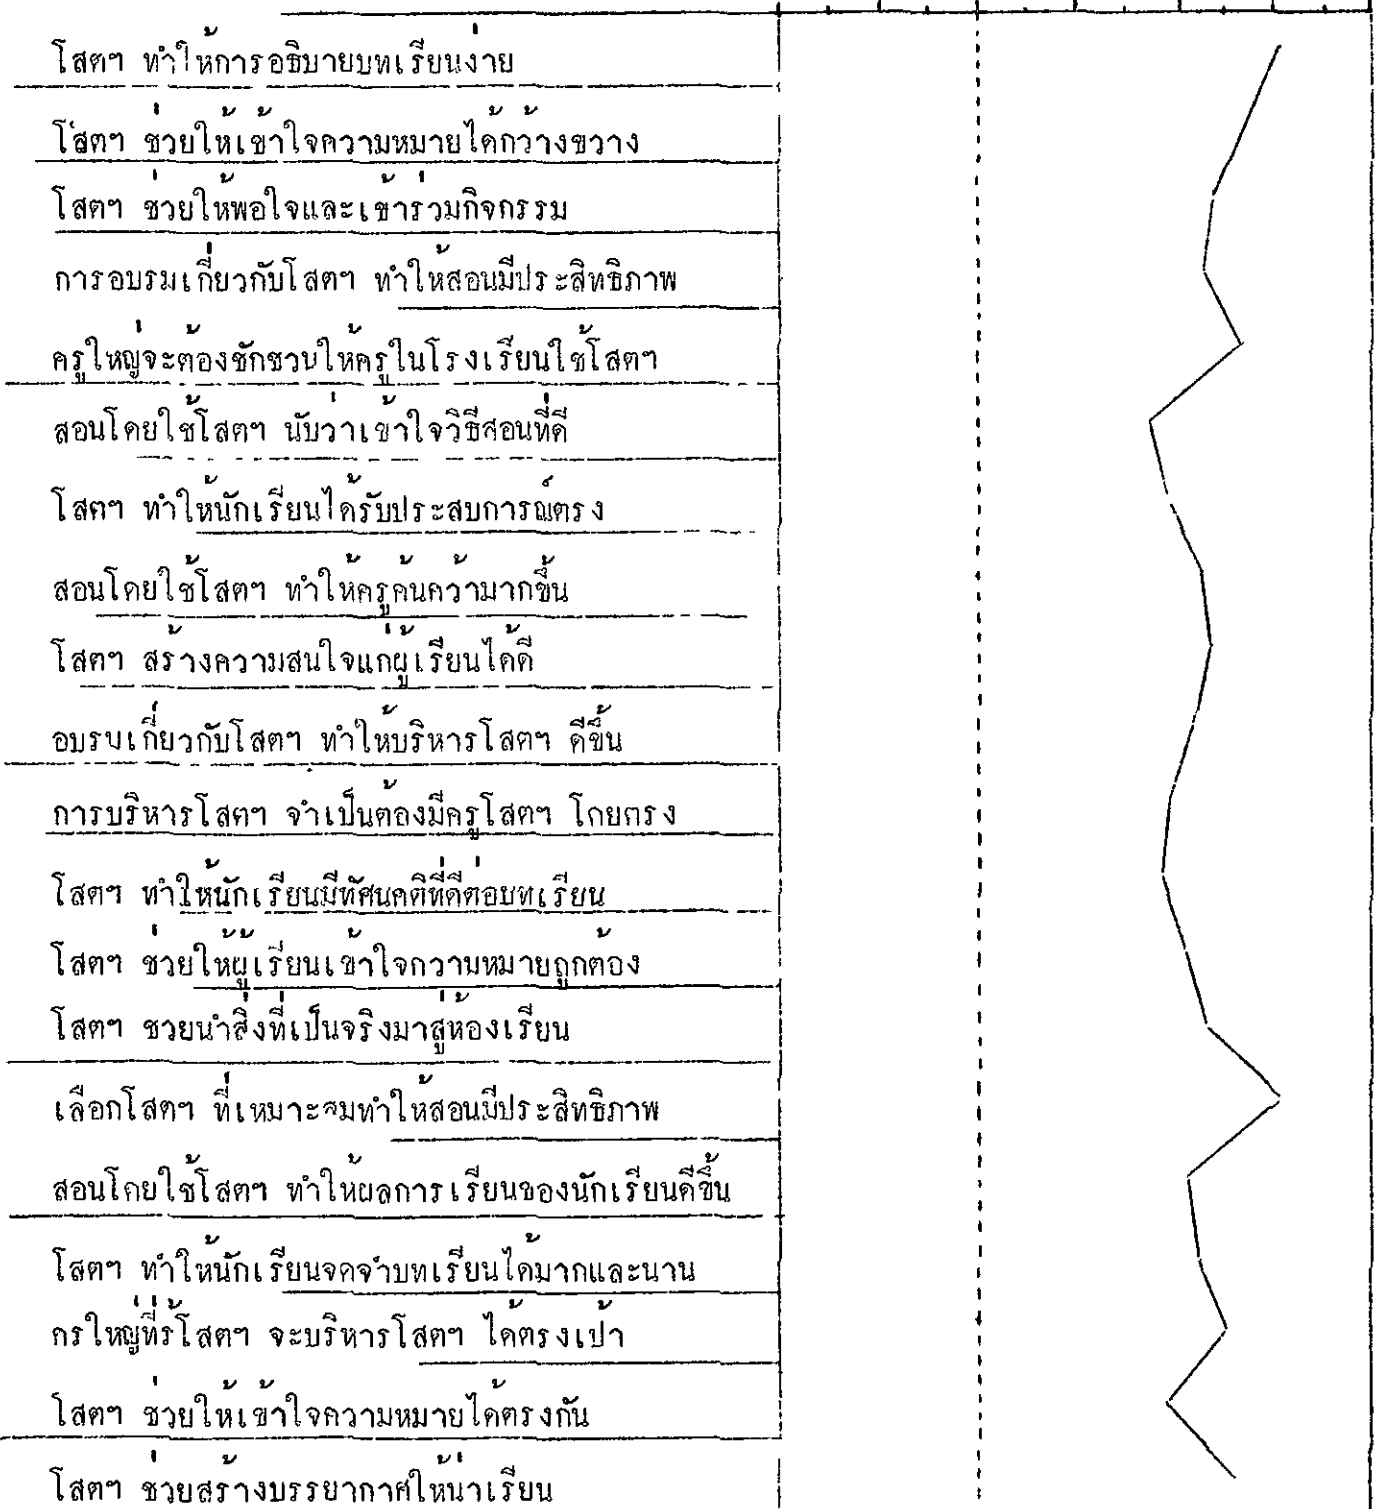 โสตฯ ทำให้การอธิบายบทเรียนง่าย
โสตฯ ช่วยให้เข้าใจความหมายได้กว้างขวาง
โสตฯ ช่วยให้พอใจและเข้าร่วมกิจกรรม
การอบรมเกี่ยวกับโสตฯ ทำให้สอนมีประสิทธิภาพ
ครูใหญ่จะต้องชักชวนให้ครูในโรงเรียนใช้โสตฯ
สอนโดยใช้โสตฯ นับว่าเข้าใจวิธีสอนที่ดี
โสตฯ ทำให้นักเรียนได้รับประสบการณ์ตรง
สอนโดยใช้โสตฯ ทำให้ครูค้นคว้ามากขึ้น
โสตฯ สร้างความสนใจแก่ผู้เรียนได้ดี
อบรมเกี่ยวกับโสตฯ ทำให้บริหารโสตฯ ดีขึ้น
การบริหารโสตฯ จำเป็นต้องมีครูโสตฯ โดยตรง
โสตฯ ทำให้นักเรียนมีทัศนคติที่ดีต่อบทเรียน
โสตฯ ช่วยให้ผู้เรียนเข้าใจความหมายถูกต้อง
โสตฯ ช่วยนำสิ่งที่เป็นจริงมาสู่ห้องเรียน
เลือกโสตฯ ที่เหมาะสมทำให้สอนมีประสิทธิภาพ
สอนโดยใช้โสตฯ ทำให้ผลการเรียนของนักเรียนดีขึ้น
โสตฯ ทำให้นักเรียนจดจำบทเรียนได้มากและนาน
ครูใหญ่ที่รู้โสตฯ จะบริหารโสตฯ ได้ตรงเป้า
โสตฯ ช่วยให้เข้าใจความหมายได้ตรงกัน
โสตฯ ช่วยสร้างบรรยากาศให้น่าเรียน